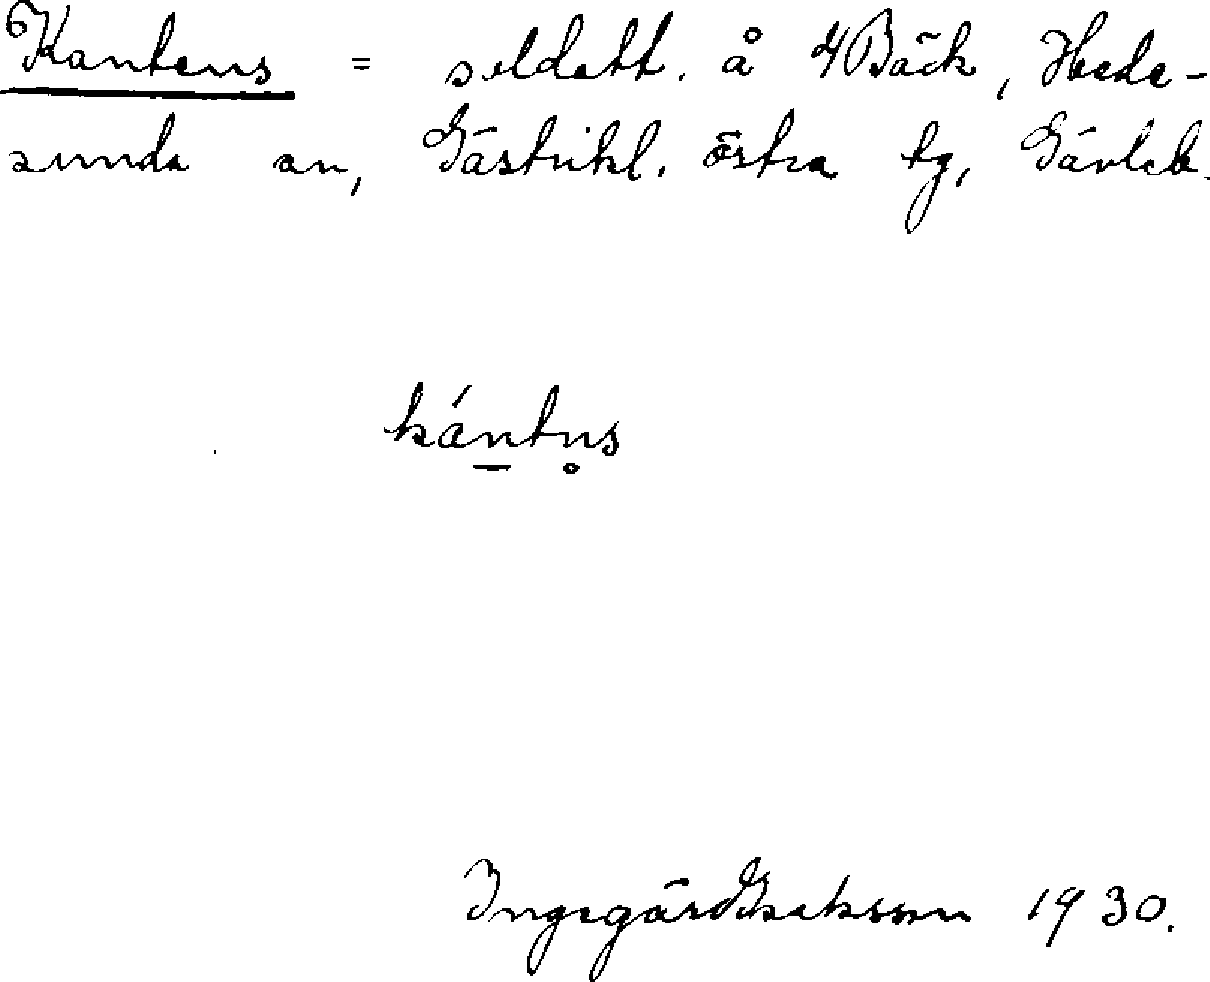 Kantens = soldatt. å 4 Bäck, Hede-
sunda sn, Gästrikl. östra tg, Gävleb.
kán̲tn̥s
Ingegärd Isaksson 1930.